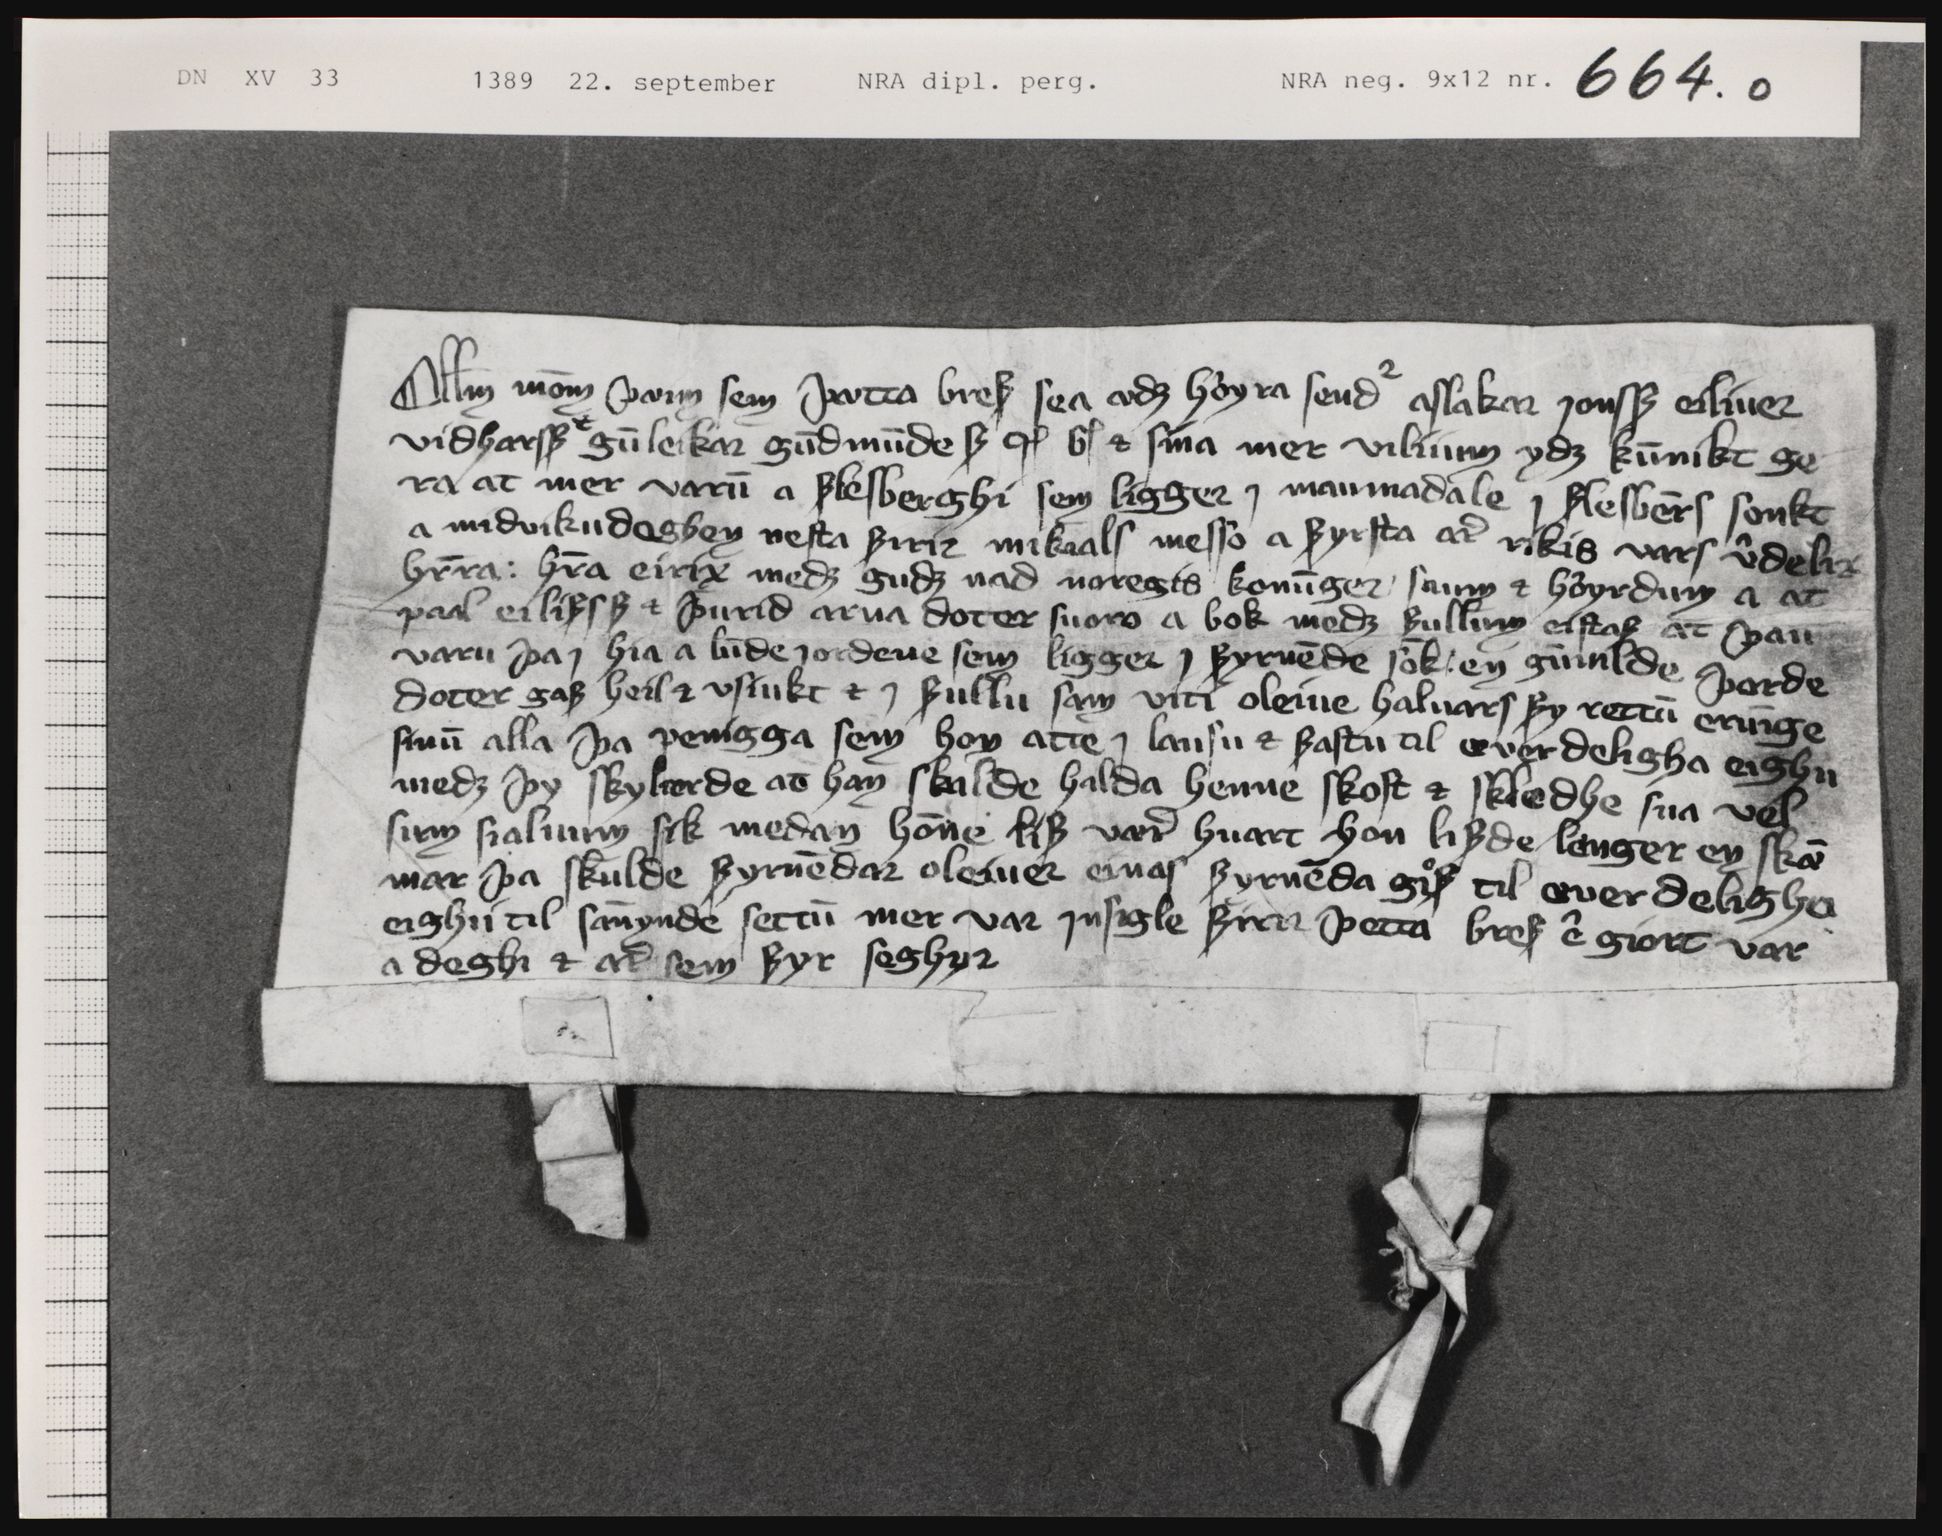 DN XV 33 1389 22. september NRA dipl. perg. NRA neg. 9x12 nr. 664.0
Ollm̄ mōm þæim sem þætta bref sea ædꝫ høyra sendʳ aslakar jonssꝫ eiliuer
vidharssꝫ ⁊ gūleikar gūdmūde sꝫ qꝭ gꝭ ⁊ sina mer vilium ydꝫ kūnikt ge
ra at mer varū a flesberghi sem ligger j maunadale j flesbērs sonkt
a midvikudeghen nesta firir mikials messo a fyrsta ar̄ rikis vars v̂deliz
hr̄ra: hr̄a eirix medꝫ gudꝫ nad noregis konūger saum ⁊ høyrdum a at
paal eilifsꝫ ⁊ þurid arna doter suoro a bok medꝫ fullum eistaf at þau
varu þa j hia a lūde jordene sem ligger j fyruēde sōk: en gūnilde þorde
doter gaf heil ⁊ vsiukt ⁊ j fullu sam viti oleiue haluars fy rettū erūige
sinū alla þa penigga sem hon atte j lausu ⁊ fastu til æverdeligha eighu
medꝫ þy skylorde at han skulde halda henne skost ⁊ skledhe sua vel
sum sialuum sik medan hōne lif var̄ huart hon lifde lenger en skā
mar þa skulde fyruēdar oleiuer einas fyruēda gif til æverdelighe
eighu til sanynde settū mer var jnsigle firir þetta bref ē giort var
a deghi ⁊ ar̄ sem fyr seghir